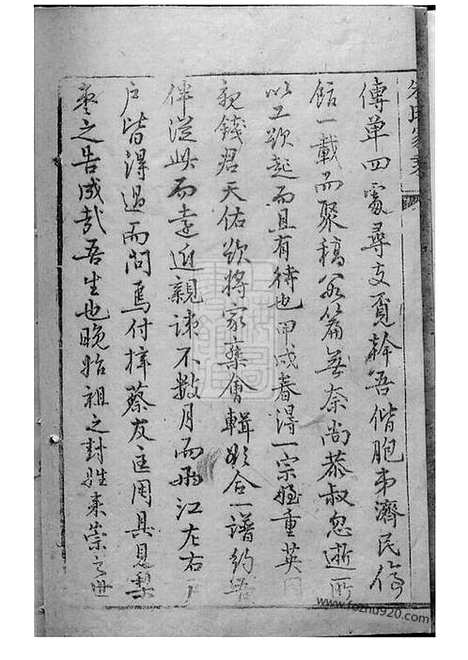 傳單四處尋支覓幹吾偕胞弟濟民停
館一載而聚稿谷篇無奈尚恭叔忽逝所
以工欲起而且有待也甲戌春得一宗姪重英
視錢君天佑欲將家乘會輯欲合一譜約
伴從此而遠近親疎不數月而兩江左右戶
戶皆得過而問焉付梓蔡友匡用具見梨
棗之告成哉吾生也晚始祖之封姓來蒂之世
www.fozhu920.com